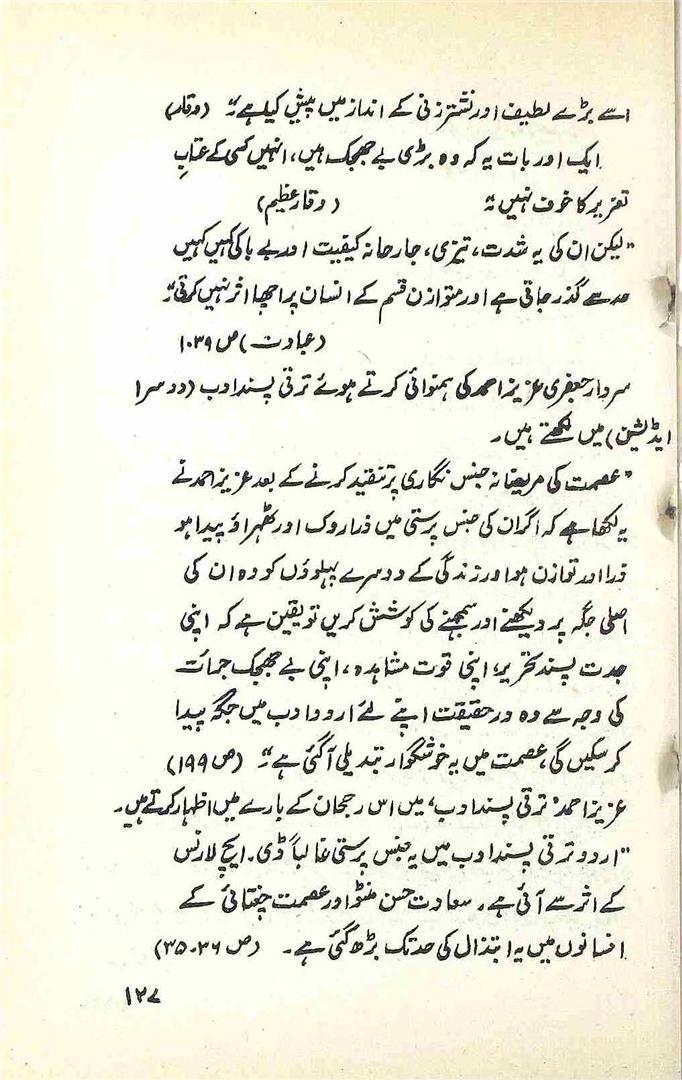 اسے بڑے لطیف اور نشتر زنی کے انداز میں پیش کیا ہے۔" (وقار)
ایک اور بات یہ کہ وہ بڑی بے جھجک ہیں، انہیں کسی کے عتابِ
تعزیر کا خوف نہیں۔" (وقار عظیم)
"لیکن ان کی یہ شدت، تیزی، جارحانہ کیفیت اور بے باکی کہیں کہیں
حد سے گذر جاتی ہے اور متوازن قسم کے انسان پر اچھا اثر نہیں کرتی۔"
(عبادت) ص ۱۰۳۹
سردار جعفری عزیز احمد کی ہمنوائی کرتے ہوئے ترقی پسند ادب (دوسرا
ایڈیشن) میں لکھتے ہیں۔
"عصمت کی مریضانہ جنس نگاری پر تنقید کرنے کے بعد عزیز احمد نے
یہ لکھا ہے کہ اگر ان کی جنس پرستی میں ذرا روک اور ٹھہراؤ پیدا ہو
ذرا اور توازن ہو اور زندگی کے دوسرے پہلوؤں کو وہ ان کی
اصلی جگہ پر دیکھنے اور سمجھنے کی کوشش کریں تو یقین ہے کہ اپنی
جدت پسند تحریر، اپنی قوت مشاہدہ، اپنی بے جھجک جرائت
کی وجہ سے وہ درحقیقت اپنے لئے اردو ادب میں جگہ پیدا
کر سکیں گی، عصمت میں یہ خوشگوار تبدیلی آگئی ہے۔" (ص ۱۹۹)
عزیز احمد 'ترقی پسند ادب' میں اس رجحان کے بارے میں اظہار کرتے ہیں۔
"اردو ترقی پسند ادب میں یہ جنس پرستی غالباً ڈی۔ ایچ لارنس
کے اثر سے آئی ہے۔ سعادت حسن منٹو اور عصمت چغتائی کے
افسانوں میں یہ ابتذال کی حد تک بڑھ گئی ہے۔ (ص ۳۶۔۳۵)
۱۲۷